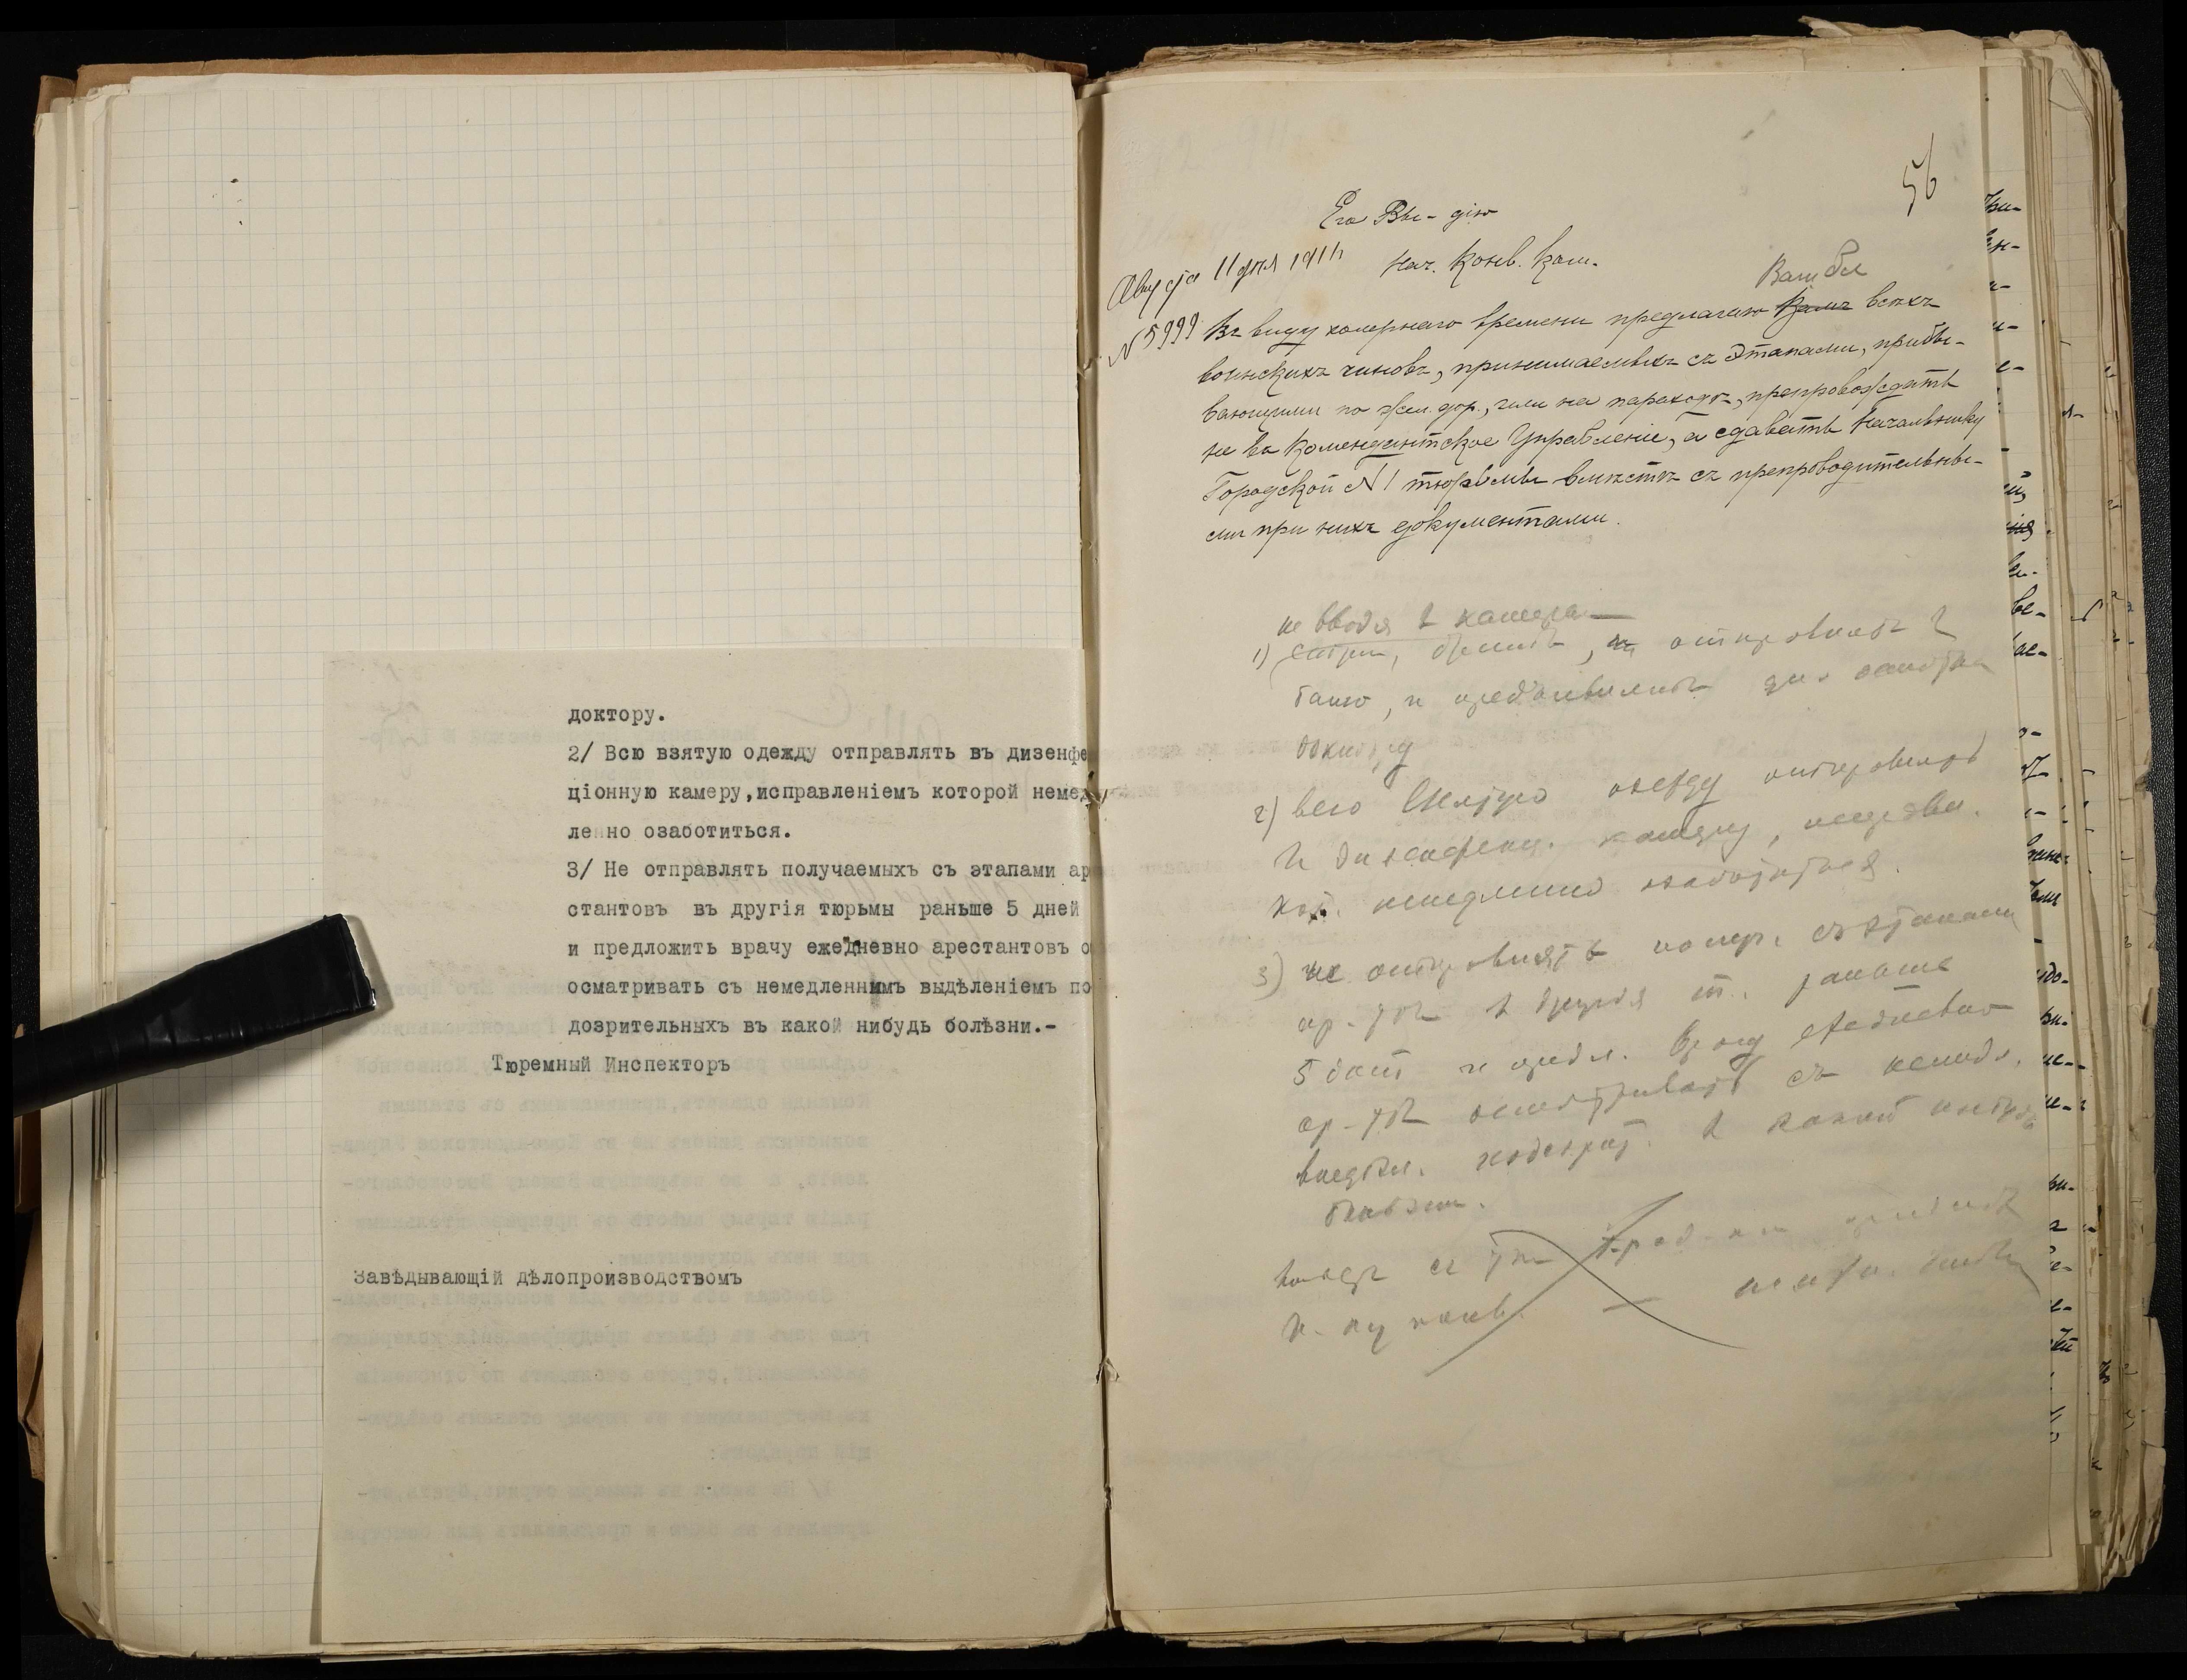 доктору.
2/ Всю взятую одежду отправлять въ дизенфе
ціонную камеру,исправленіемъ которой немед
ленно озаботиться.
3/ Не отправлять получаемыхъ съ этапами ар
стантовъ въ другія тюрьмы раньше 5 дней
и предложить врачу ежедневно арестантовъ о
осматривать съ немедленнымъ выдѣленіемъ по
дозрительныхъ въ какой нибудь болѣзни.-
Тюремный Инспекторъ
Завѣдывающій дѣлопроизводствомъ
56
Его Вы-дію
Августа 11 дня 1911
Нач. Конв. Ком.
№ 5999
Ваш бл
Въ виду холернаго времени предлагаю Вамъ всѣхъ
воинскихъ чиновъ, принимаемыхъ съ Этапами, прибы-
вающими по жел. дор., или на пароходѣ, препровождать
не въ Комендантское Управленіе, а сдавать Начальнику
Городской №1 тюрьмы вмѣстѣ съ препроводительны-
ми при нихъ документами.
не вводя в камеры
1) стричь, брить, отправлять в
баню, и предъявлять для осмотра
доктору
2) всю взятую одежду отправлять
в дизенфекц. камеру, исправл.
кот. немедленно озаботиться.
3) не отправлять получ. съ этапами
ар-товъ в другія т. раньше
5 дней и предл. врачу ежедневно
ар-товъ осматривать съ немедл.
выдѣл. подозрит. в какой нибудь
болѣзни.